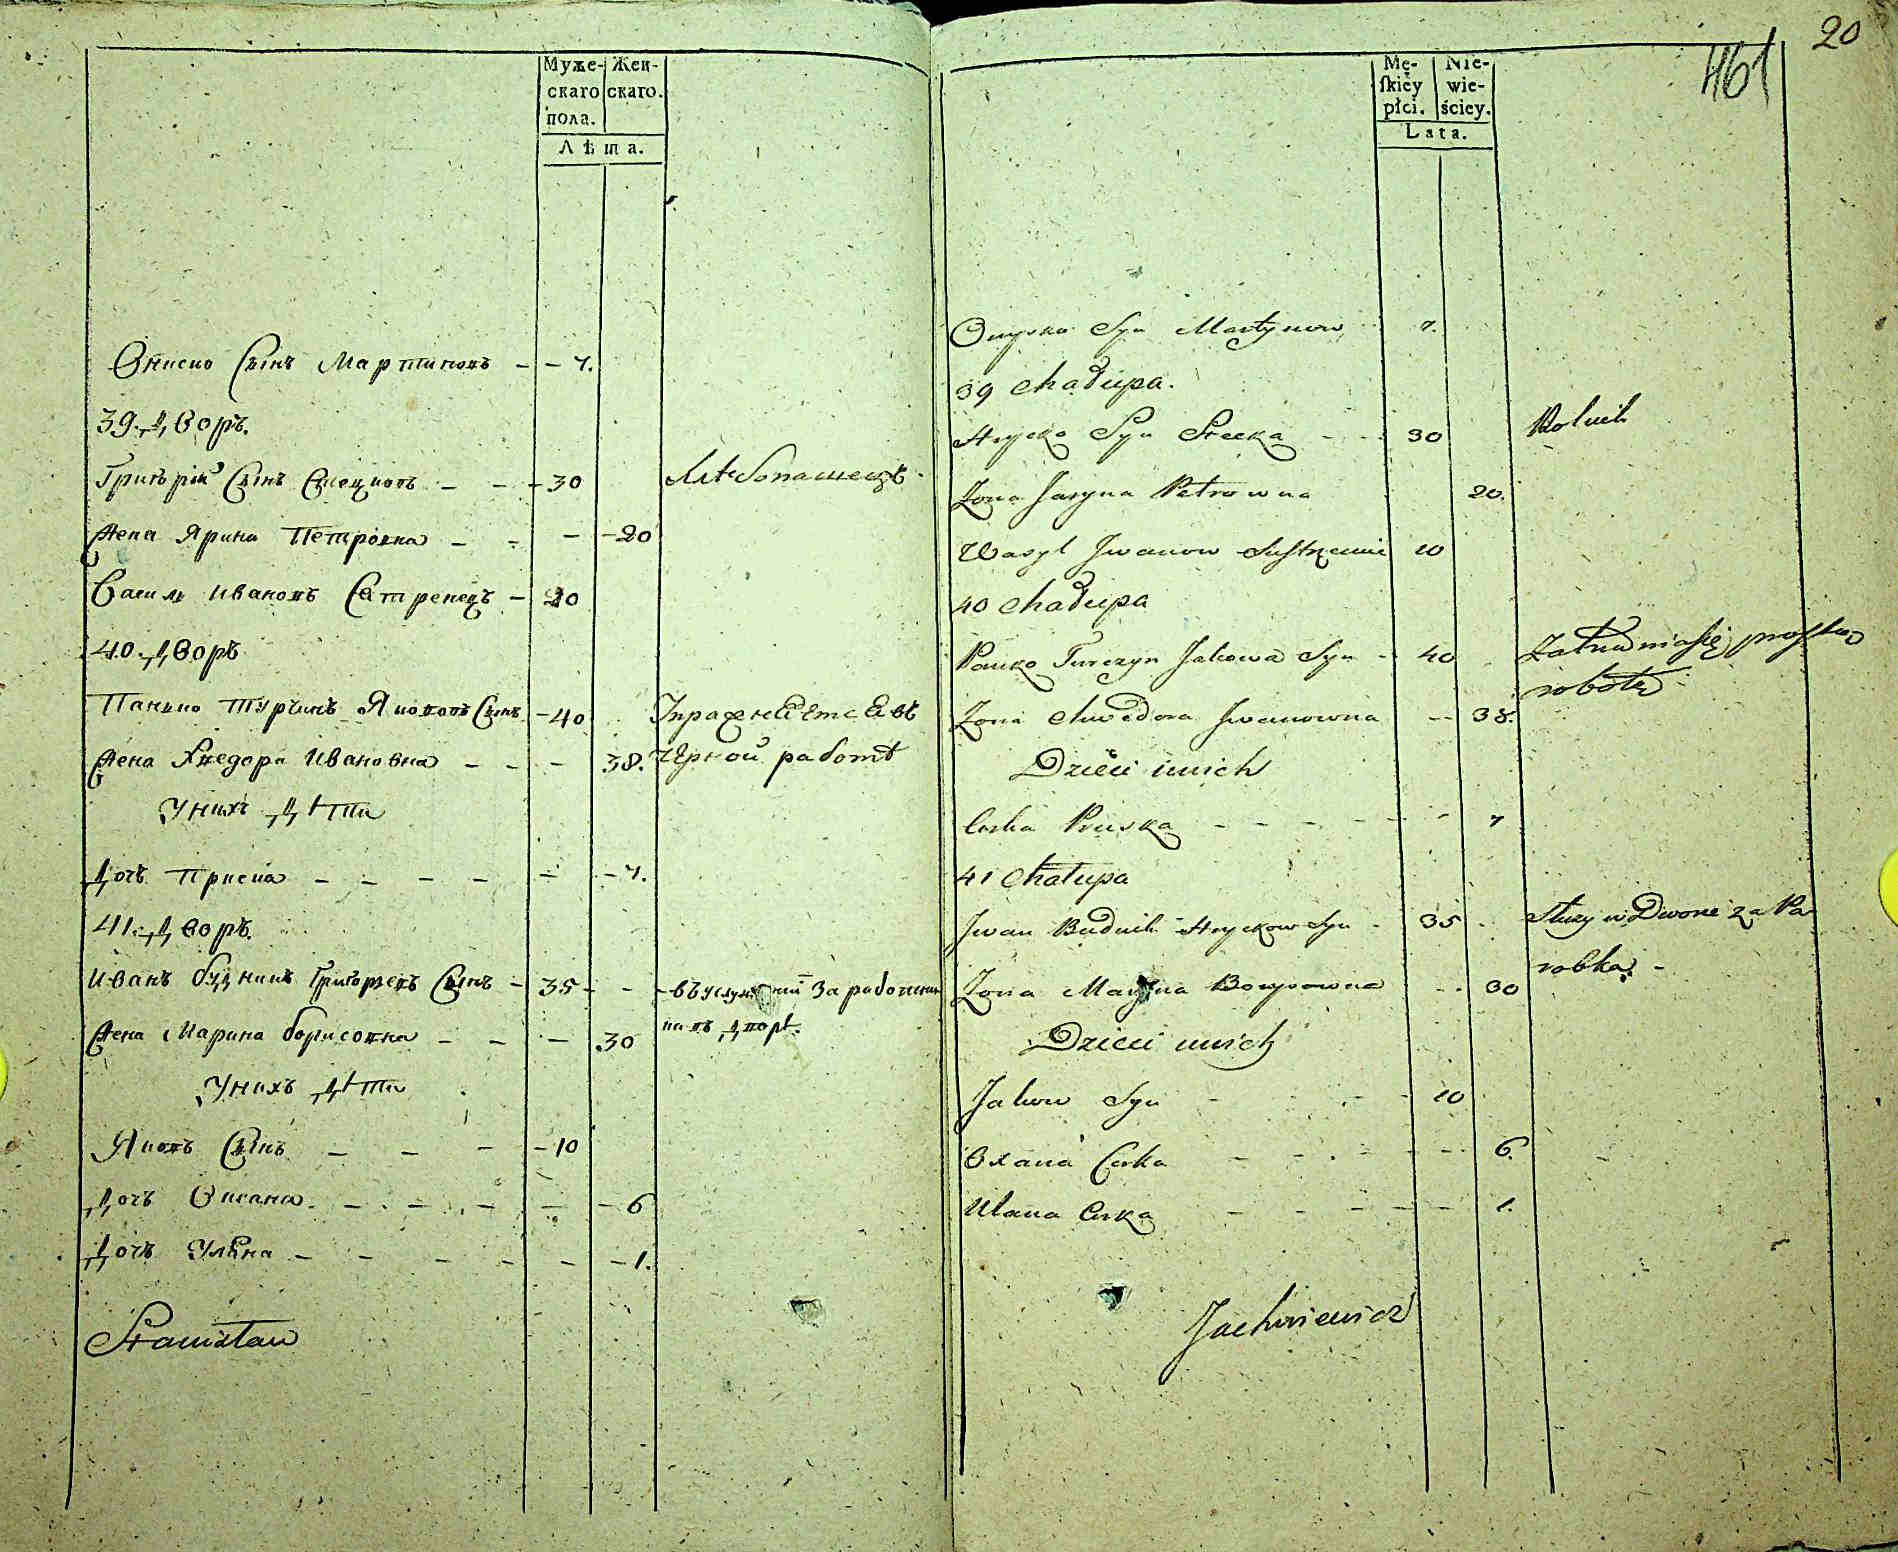 Муже-
скаго
пола.
Жен-
скаго.
Лѣта.
Ониско Сынъ Мартиновъ - - 7.
39. Дворъ.
Григорій Сынъ - - - 30 Хлѣбопашецъ
Жена Ярина Петровна - - - - 20
Василь Ивановъ - 20
40. Дворъ
Панько Турчинъ Якововъ Сынъ - 40 Упражняется въ
Жена Хведора Ивановна - - - 38. Чорной работѣ
Унихъ Дѣти
Дочъ Приска - - - - - - 7.
41. Дворъ.
Иванъ будникъ Сынъ - 35 - - за
Жена Марина борисовна - - - 30
Унихъ Дѣти
Яковъ Сынъ - - - - 10
Дочъ Оксана - - - - - - 6
Дочъ Уляна - - - - - - 1.
Stanisław
20
461
Mę-
skiéy
płci.
Nie-
wie-
ściey.
Lata.
Onysko Syn Martynow 7.
39 Chałupa.
Hrycko Syn - - 30 Rolnik
Zona Jaryna Petrowna 20.
Wasyl Jwanow 20
40 Chałupa
Panko Turczyn Jakowa Syn - 40 Zatrudnia się prostą
robotą
Zona Chwedora Jwanowna - - 38.
Dzieci unich
Corka Pryska - - - - - - 7
41 Chałupa
Jwan Budnik Hryckow Syn - 35 Służy w Dworie za Pa
robka. -
Zona Maryna Borysowna - - 30
Dzieci unich
Jakow Syn - - - 10
Oxana Corka - - - - - 6.
Ulana Corka - - - - - 1.
Jachniewicz